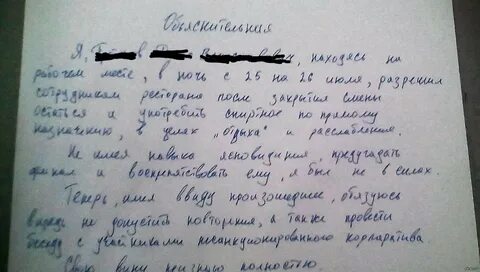 Объяснительная
Я, находясь на
рабочем месте, в ночь с 25 на 26 июля, разрешил
сотрудникам ресторана после закрытия смены
остаться и употребить спиртное по прямому
назначению, в целях "отдыха" и расслабления.
Не имея навыка ясновидения, предугадать
финал и воспрепятствовать ему, я был не в силах
Теперь, имея ввиду произошедшее, обязуюсь
впредь не допустить повторния, а также провести
беседу с участниками несанкционированного корпаратива
Свою вину признаю полностью.